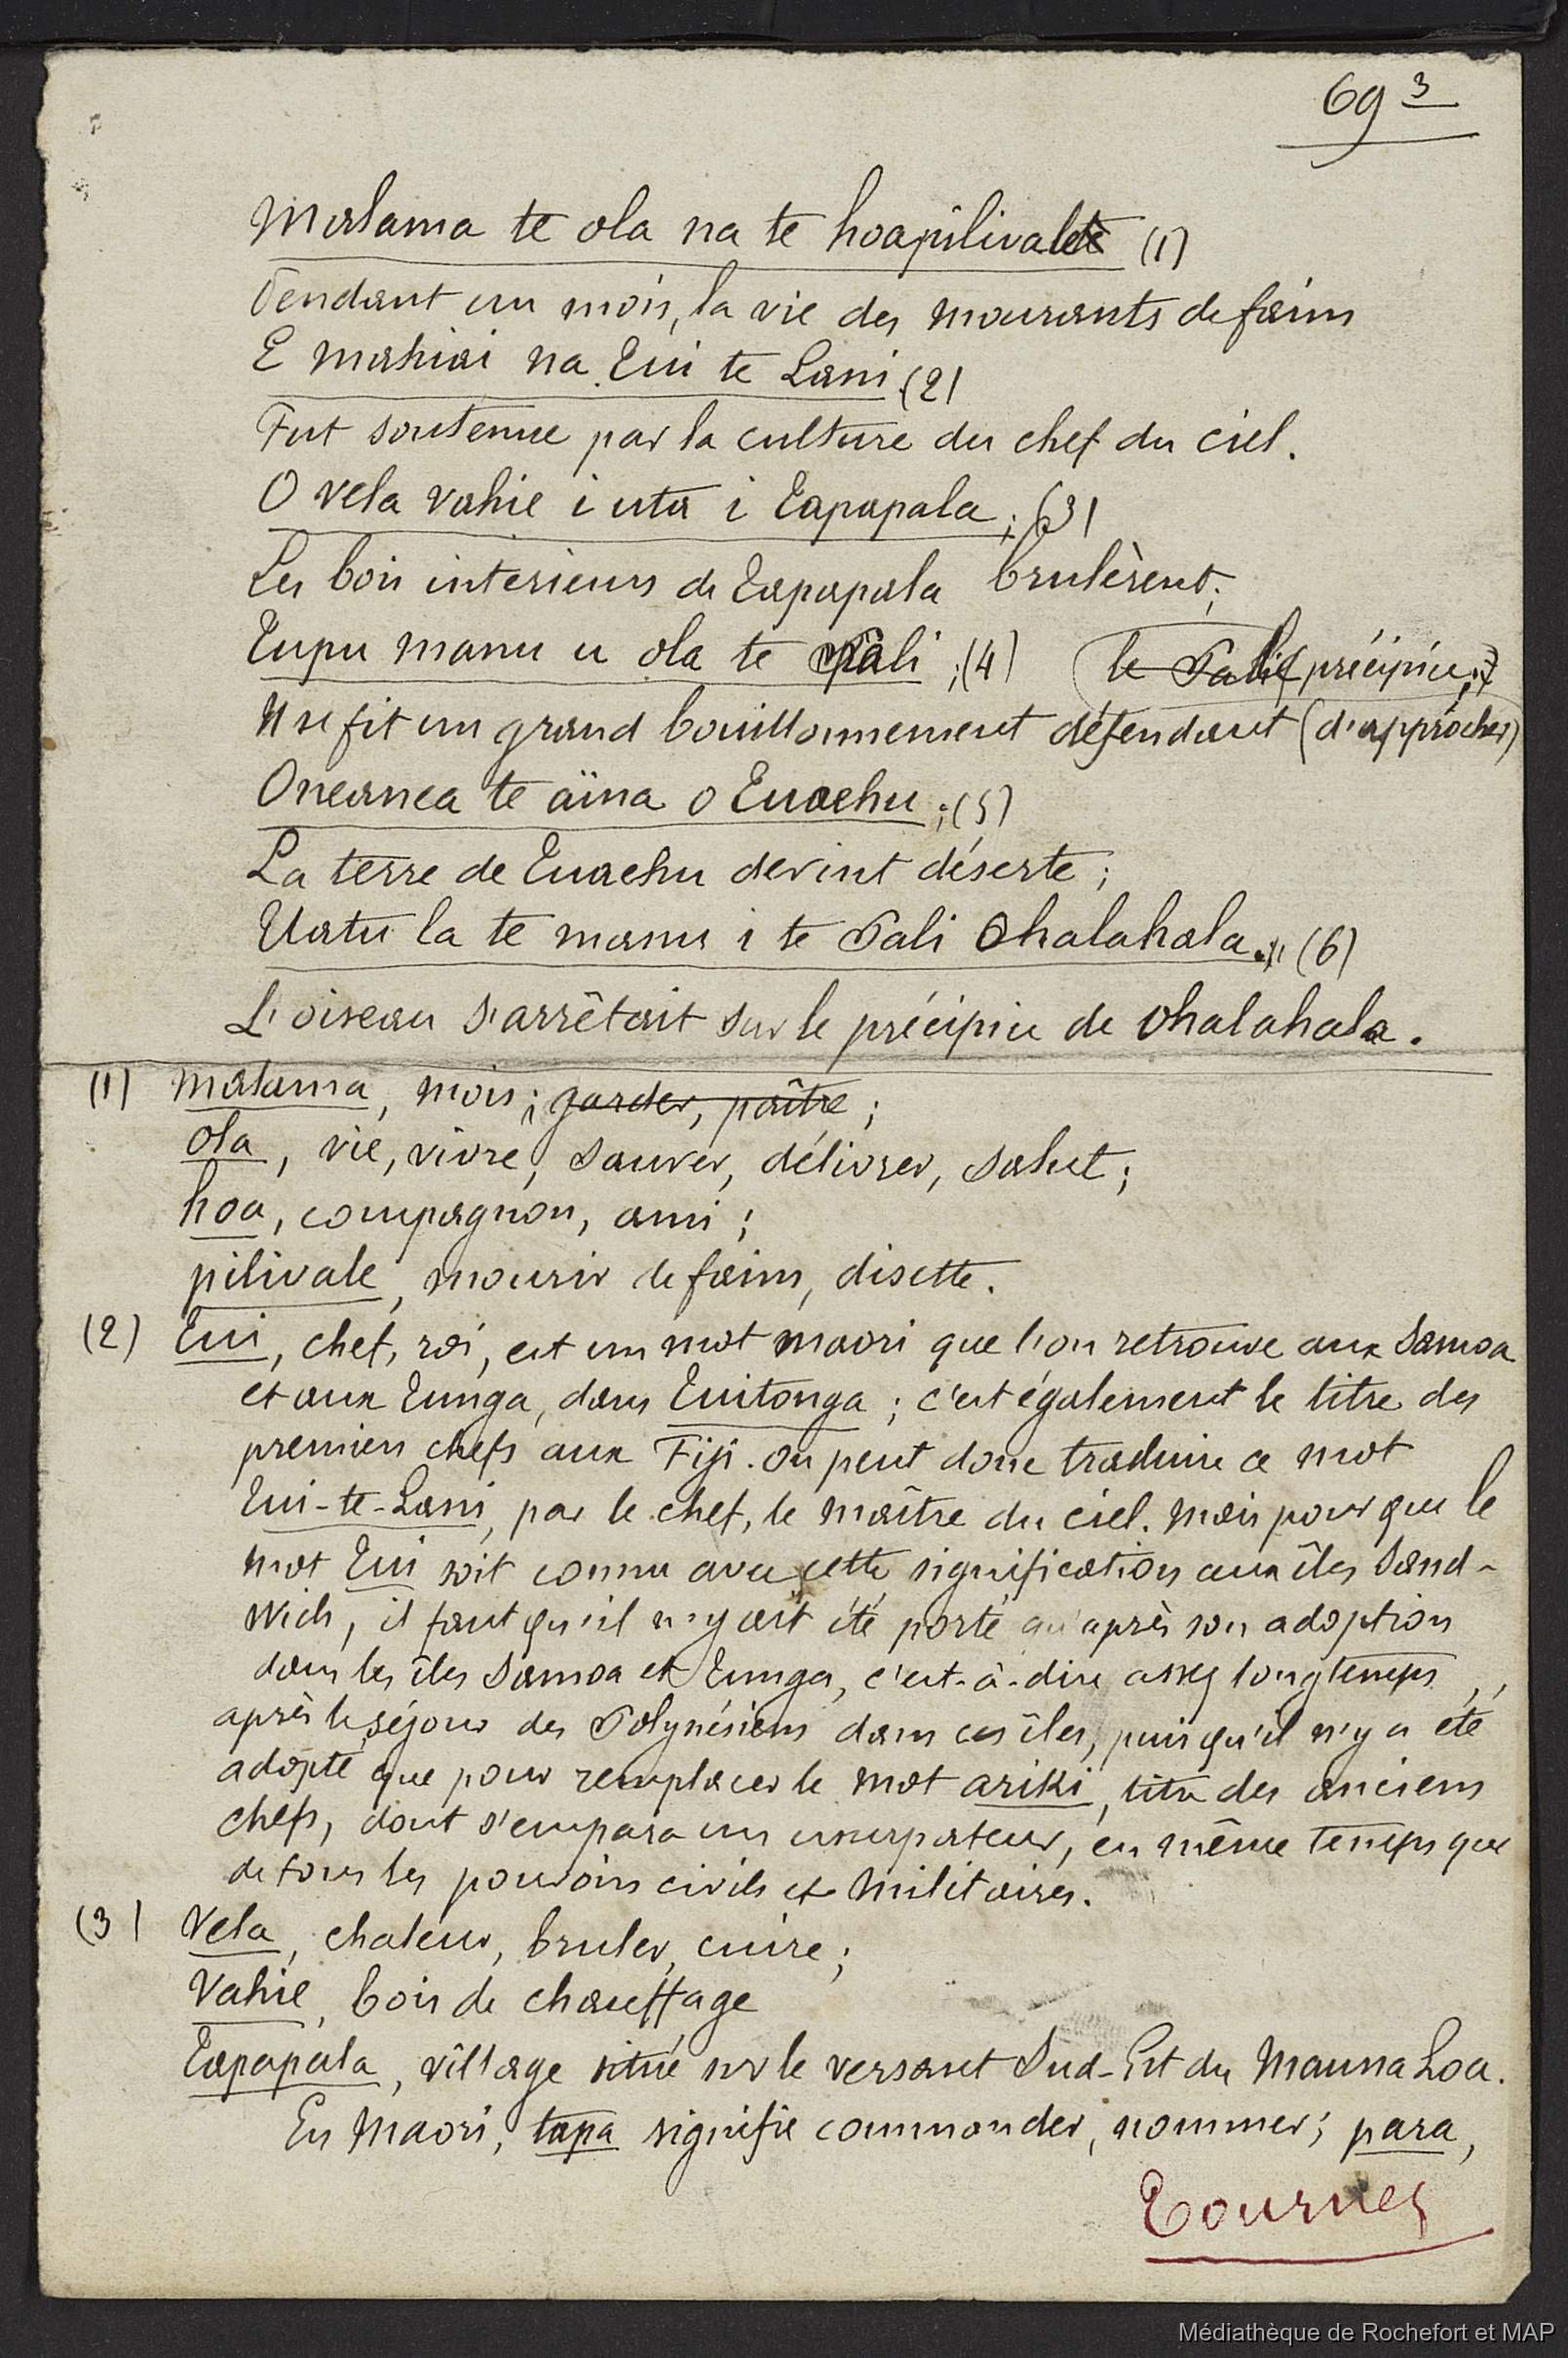 69 3
Malama te ola na te hoapilivale (1)
Pendant un mois, la vie des mourants de faim
E mahiai na Tui te Lani (2)
Fut soutenue par la culture du chef du ciel.
O vela vahie i uta i Tapapala ; (3)
Les bois interieurs de Tapapala brulèrent ;
Tupu manu u ola te Pali ; (4) le Pali (précipice ;)
Il se fit un grand bouillonnement défendant (d'approcher)
Oneanea te aïna o Tuaehu ; (5)
La terre de Tuaehu devint déserte ;
Uatu la te manu i te Pali Ohalahala. » (6)
L'oiseau s'arrêtait sur le précipice de Ohalahala.
(1) Malama, mois ; garder, paître ;
ola, vie, vivre, sauver, délivrer, salut ;
hoa, compagnon, ami ;
pilivale, mourir de faim, disette.
(2) Tui, chef, roi, est un mot maori que l'on retrouve aux Samoa
et aux Tunga, dans Tuitonga ; c'est également le titre des
premiers chefs aux Fiji. On peut donc traduire ce mot
Tui-te-Lani, par le chef, le maître du ciel. Mais pour que le
mot Tui soit connu avec cette signification aux îles Sand-
wich, il faut qu'il n'y ait été porté qu'après son adoption
dans les îles Samoa et Tunga, c'est-à-dire assez longtemps
après le séjour des Polynésiens dans ces îles, puisqu'il n'y a été
adopté que pour remplacer le mot ariki, titre des anciens
chefs, dont s'empara un usurpateur, en même temps que
de tous les pouvoirs civils et militaires.
(3) Vela, chaleur, bruler, cuire ;
Vahie, bois de chauffage
Tapapala, village situé sur le versant Sud-Est du Mauna Loa.
En Maori, tapa signifie commander, nommer ; para,
Tournez
Médiathèque de Rochefort et MAP